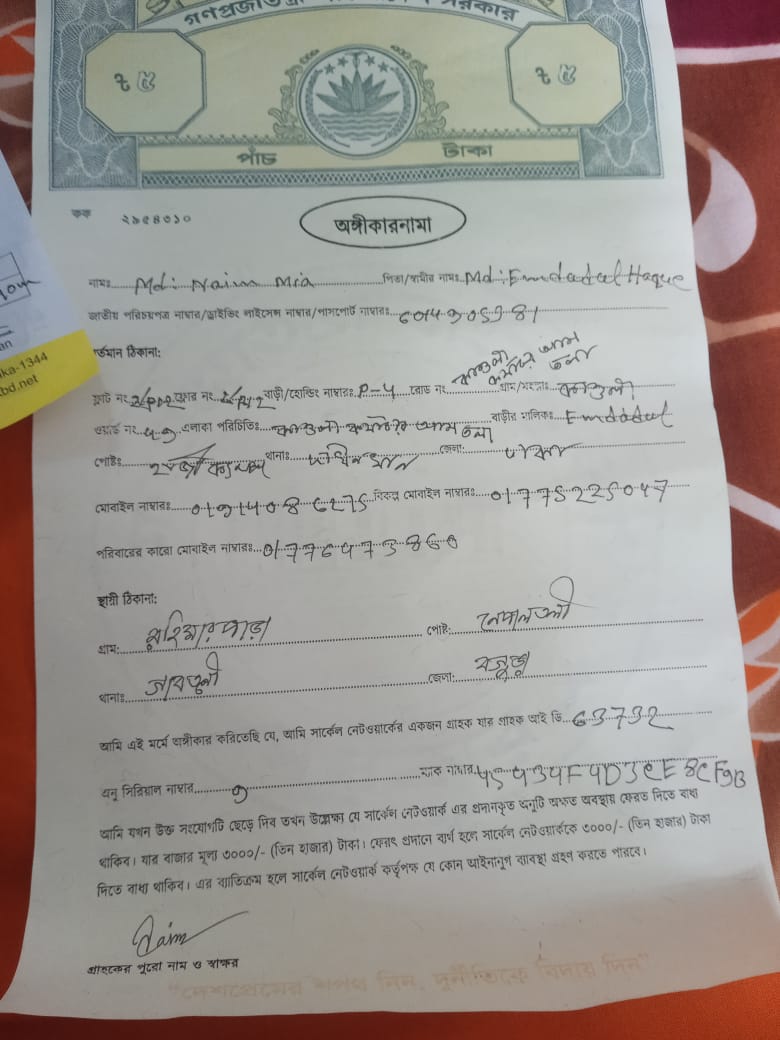 গণপ্রজাতন্ত্রী সরকার
৳ ৫ ৳ ৫
পাঁচ টাকা
কক ২৯৫৪৩১০
অঙ্গীকারনামা
নামঃ Md: Naim Mia পিতা/স্বামীর নামঃ Md: Emdadul Haque
জাতীয় পরিচয়পত্র নাম্বার/ড্রাইভিং লাইসেন্স নাম্বার/পাসপোর্ট নাম্বারঃ
র্তমান ঠিকানা:
ফ্লাট নং ফ্লোর নং বাড়ী/হোল্ডিং নাম্বারঃ P-4 রোড নং গ্রাম/মহল্লাঃ কাওলা
ওয়ার্ড নং এলাকা পরিচিতিঃ বাড়ীর মালিকঃ Emdadul
পোষ্টঃ থানাঃ দক্ষিনখান জেলা: ঢাকা
মোবাইল নাম্বারঃ বিকল্প মোবাইল নাম্বারঃ 01775225047
পরিবারের কারো মোবাইল নাম্বারঃ
স্থায়ী ঠিকানা:
গ্রাম: পোষ্ট: নেপালতলী
থানাঃ গাবতলী জেলা: বগুড়া
আমি এই মর্মে অঙ্গীকার করিতেছি যে, আমি সার্কেল নেটওয়ার্কের একজন গ্রাহক যার গ্রাহক আই ডি 63732
অনু সিরিয়াল নাম্বার ম্যাক নাম্বার
আমি যখন উক্ত সংযোগটি ছেড়ে দিব তখন উল্লেক্ষ্য যে সার্কেল নেটওয়ার্ক এর প্রদানকৃত অনুটি অক্ষত অবস্থায় ফেরত দিতে বাধ্য
থাকিব। যার বাজার মূল্য ৩০০০/- (তিন হাজার) টাকা। ফেরৎ প্রদানে ব্যর্থ হলে সার্কেল নেটওয়ার্ককে ৩০০০/- (তিন হাজার) টাকা
দিতে বাধ্য থাকিব। এর ব্যাতিক্রম হলে সার্কেল নেটওয়ার্ক কর্তৃপক্ষ যে কোন আইনানুগ ব্যবস্থা গ্রহণ করতে পারবে।
Naim
গ্রাহকের পুরো নাম ও স্বাক্ষর
"দেশপ্রেমের শপথ নিন, দুর্নীতিকে বিদায় দিন"
ka-1344
bd.net